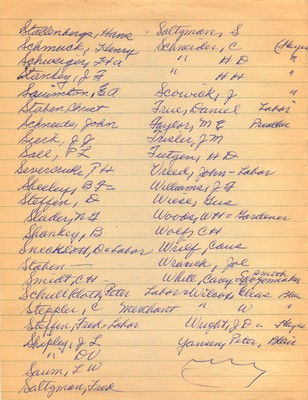 Stallenbergs, Hans - Saltzman, S
Schmuck, Henry Schneider, C (Hayes
Schweiger, F + A " H D "
Stankey, J F " H H "
Swinton, E A Scowick, J "
Staben, Chust True, Daniel Labor
Schneider, John Taylor, M E Preacher
Sjeck, J G Trisler, J M
Sall, P L Tietgen, H D
Severosike, P H Vreed, John - Labor
Sheeley, B F = Williams, J F
Steffen, D Wiese, Gus
Slader, N G Woods, W H = Gardener
Shankey, B Wolf, C H
Sneoklott, D = Labor Wrief, Caus
Staben — Wranek, Joe
Smidt, C H White, Carey Smith
Schultkloth, Peter Labor = Wilson, Elias Blair
Steppler, C Merchant " W "
Steffen, Fred = Labor Wright, J D = Hayes
Shipley, J L Yansen, Peter, Blair
" D V
Saum, L W
Saltzman, Fred